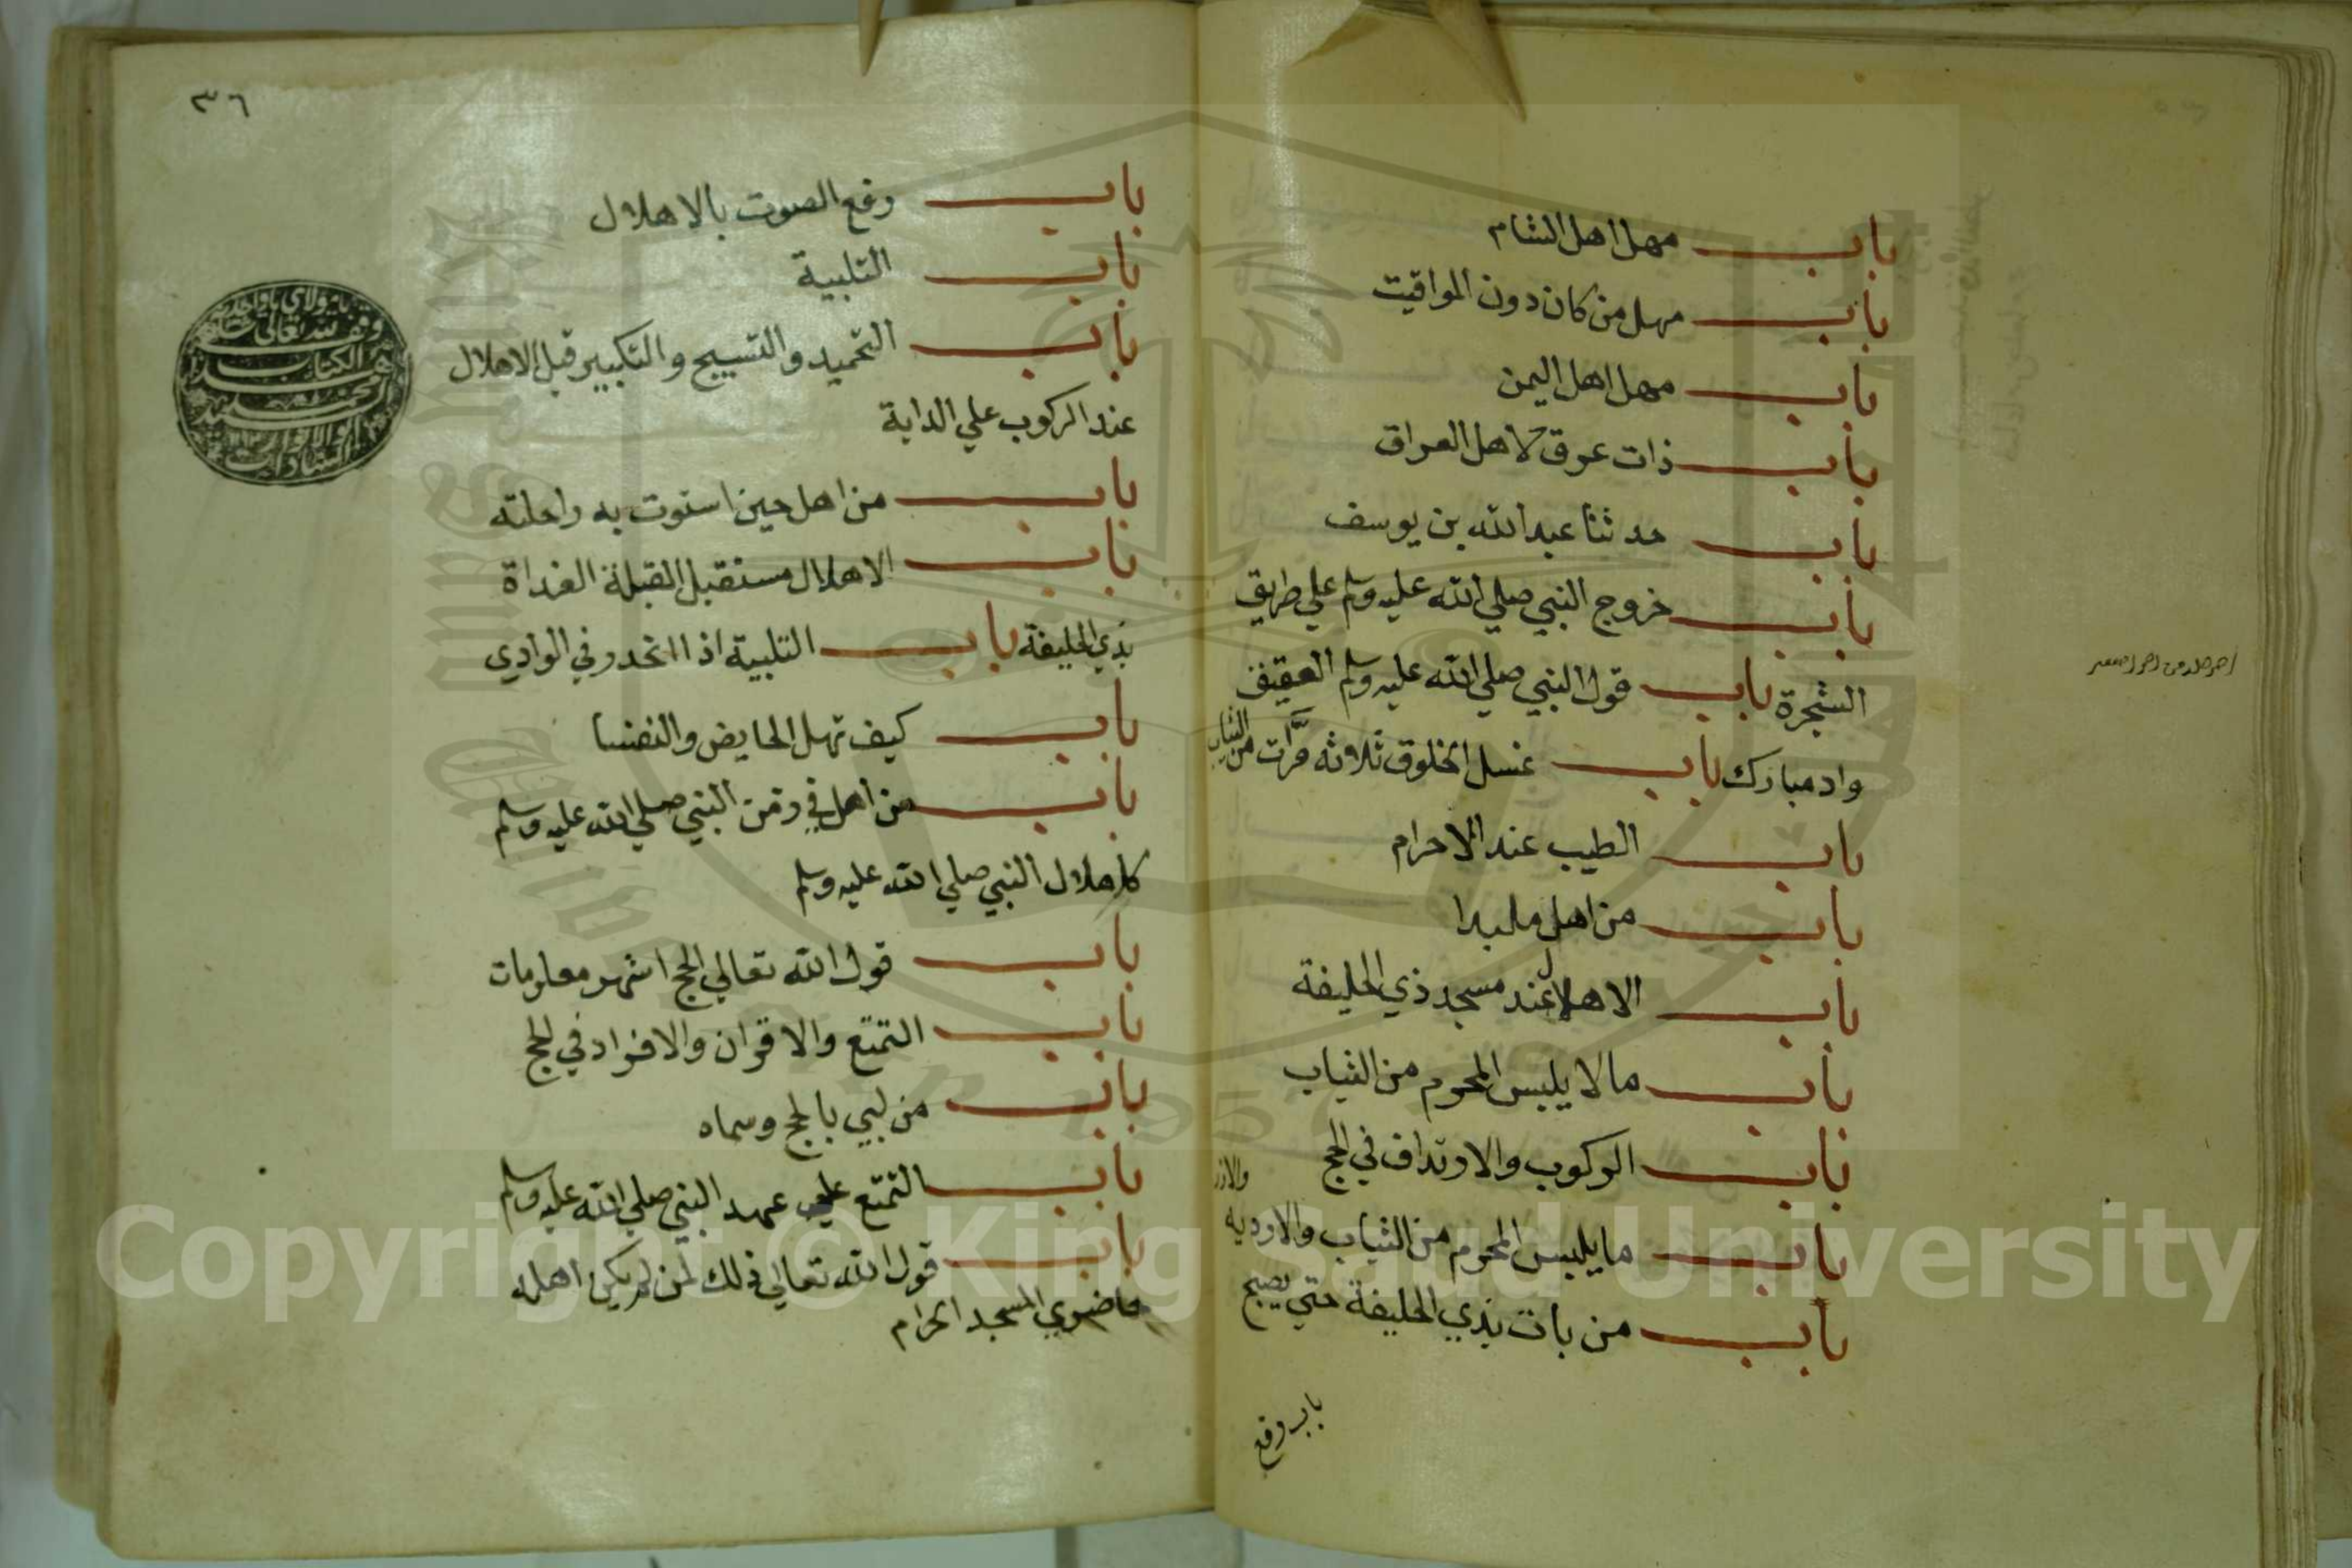 باب مهل اهل الشام
باب مهل من كان دون المواقيت
باب مهل اهل اليمن
باب ذات عرق لاهل العراق
باب حدثنا عبد الله بن يوسف
باب خروج النبي صلي الله عليه وسلم علي طريق
الشجرة باب قول النبي صلي الله عليه وسلم العقيق
واد مبارك باب غسل الخلوق ثلاثه مرّت من الثياب
باب الطيب عند الاحرام
باب من اهل ملبدا
باب الاهلال عند مسجد ذي الحليفة
باب مالا يلبس المحرم من الثياب
باب الركوب والارتداف في الحج
باب ما يلبس المحرم من الثياب والارديه والازر
باب من بات بذي الحليفة حتي يصبح
باب رفع
٣٦
باب رفع الصوت بالاهلال
باب التلبية
باب التحميد والتسبيح والتكبير قبل الاهلال
عند الركوب علي الدابة
باب من اهل حين استوت به راحلته
باب الاهلال مستقبل القبلة الغداة
بذي الحليفة باب التلبية اذا انحدر في الوادي
باب كيف تهل الحايض والنفسا
باب من اهل في زمن النبي صلي الله عليه وسلم
كاهلال النبي صلي الله عليه وسلم
باب قول الله تعالي الحج اشهر معلومات
باب التمتع والاقران والافراد في الحج
باب من لبي بالحج وسماه
باب التمتع علي عهد النبي صلي الله عليه وسلم
باب قول الله تعالي ذلك لمن لم يكن اهله
حاضري المسجد الحرام
وقف لله تعالى
هذا الكتاب
Copyright © King Saud University
1957